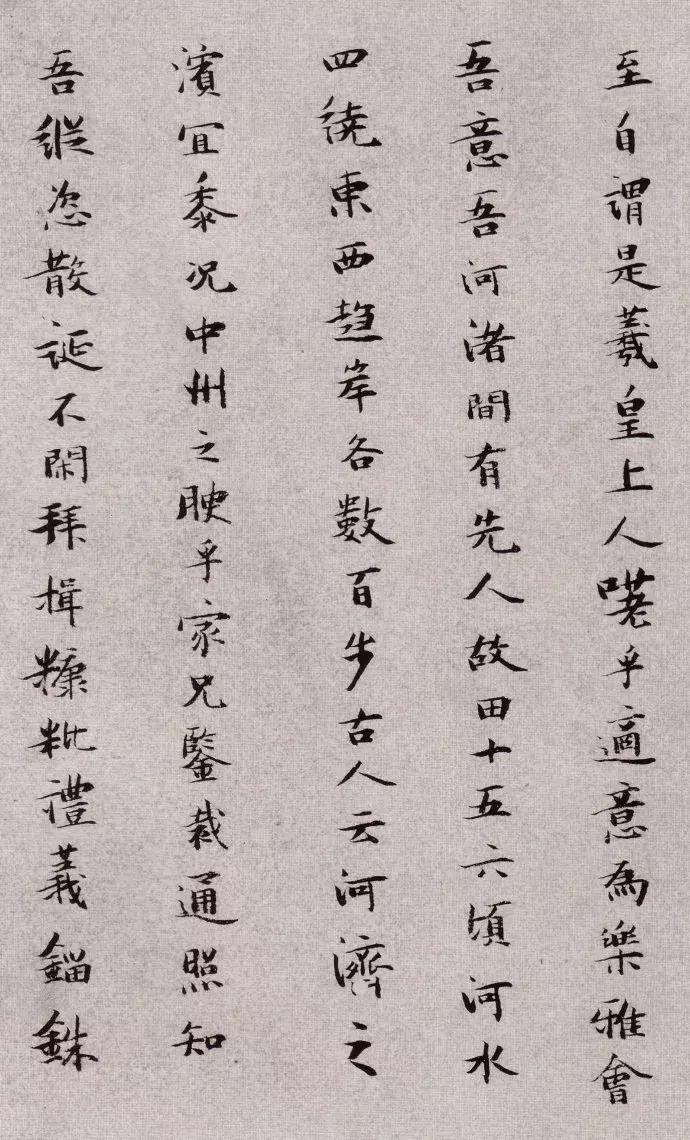 至自謂是羲皇上人嗟乎適意為樂雅會
吾意吾河渚間有先人故田十五六頃河水
四繞東西趍岸各數百步古人云河濟之
濱宜黍况中州之腴乎家兄鑒裁通照知
吾縱恣散誕不閑拜揖糠粃禮義錙銖